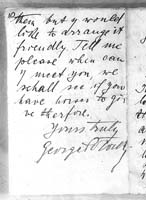 them but y would
like to arrange it
friendly. Tell me
please when can
I meet you, we
shall see if you
have horses to gi
ve therfore.
Yours truly
George